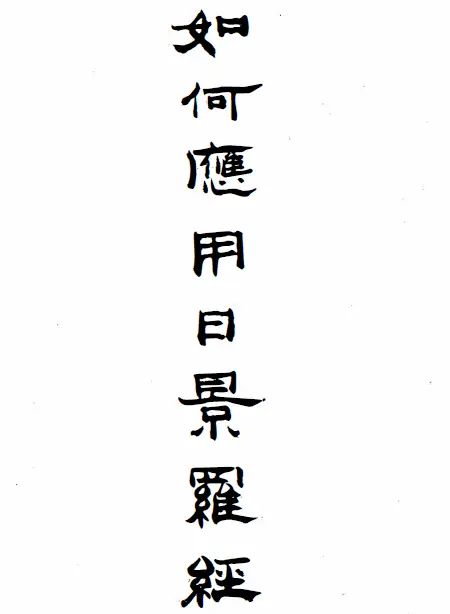 如何應用日景羅經